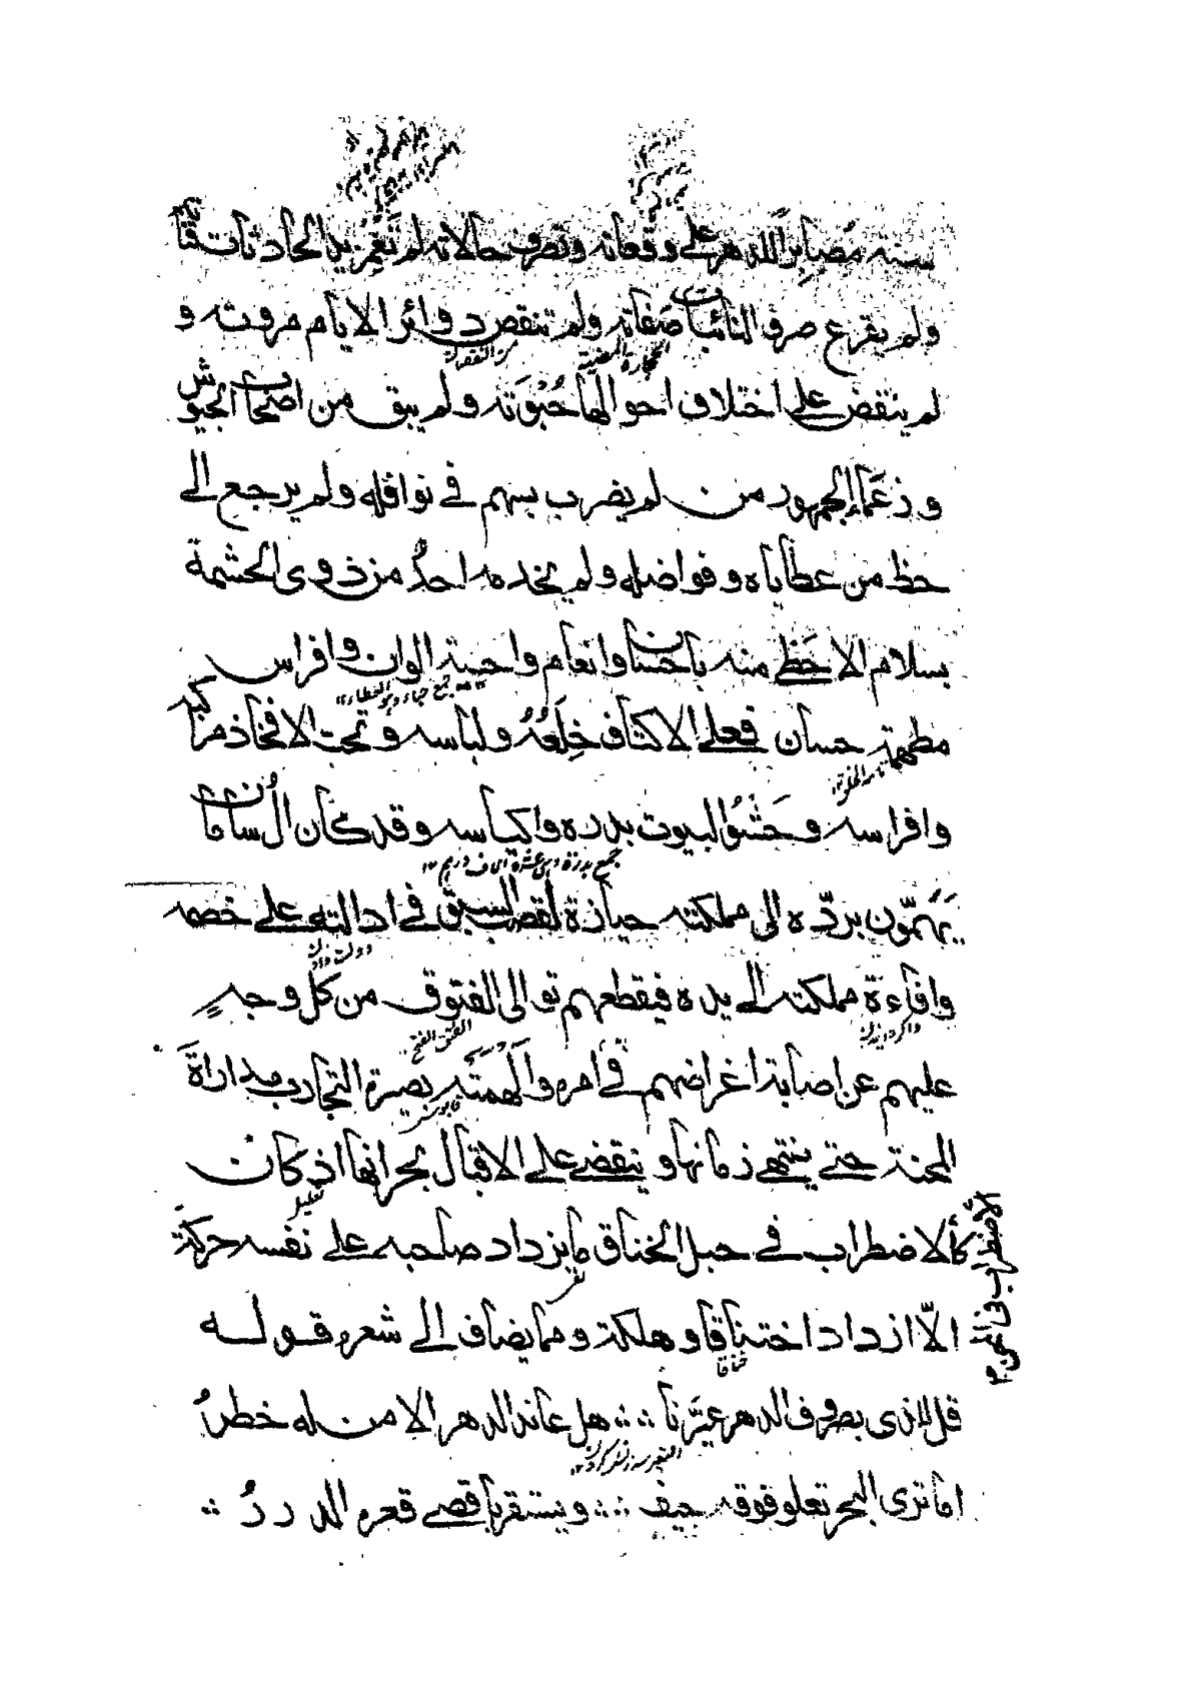 سنة مصابرًا للدهر على وقعاته وتصرف حالاته لم تغمز يد الحادثات قناته
ولم يقرع صرف النائبات صفاته ولم تنقص دوائر الايام مروته و
لم ينقض على اختلاف احوالها حُبْوَته ولم يبق من اصحاب الجيوش
و زعماء الجمهور من لم يضرب بسهم في نوافله ولم يرجع الى
حظ من عطاياه وفواضله ولم يخدمه احدٌ من ذوى الحشمة
بسلام الا حَظِي منه باحسان وانعام واحبية الوان وافراس
جمع حباء وهو العطاء
مطهمة حسان فعلى الاكتاف خِلَعُهُ ولباسه وتحت الافخاذ مراكبه
تامة الخلق
وافراسه وحَشْوُ البيوت بدره واكياسه وقد كان ال سامان
جمع بدرة وهى عشرة الاف درهم
يَهُمّون بردّه الى مملكته حيازة لقصب السبق في ادالته على خصمه
وافاءة مملكته الى يده فيقطعهم توالى الفتوق من كل وجهٍ
عليهم عن اصابة اغراضهم في امره والهمته بصيرة التجارب مداراة
المحنة حتى ينتهى زمانها وينقضي على الاقبال بحرانها اذ كان
كالاضطراب في حبل الخناق ما يزداد صاحبه على نفسه حركة
الاضطراب في
الّا ازداد اختناقا وهلكة ومما يضاف الى شعره قوله
قل للذى بصروف الدهر عيّرنا ؞ هل عاند الدهر الا من له خطرُ
اما ترى البحر تعلو فوقه جيف ؞ ويستقر باقصى قعره الدررُ ؞